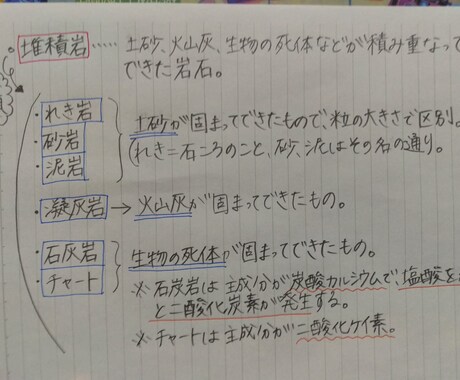 堆積岩……土砂、火山灰、生物の死体などが積み重なって
できた岩石。
・れき岩
・砂岩
・泥岩
土砂が固まってできたもので、粒の大きさで区別。
(れき=石ころのこと、砂、泥はその名の通り。
・凝灰岩→火山灰が固まってできたもの。
・石灰岩
・チャート
生物の死体が固まってできたもの。
※石灰岩は主成分が炭酸カルシウムで、塩酸を
と二酸化炭素が発生する。
※チャートは主成分が二酸化ケイ素。